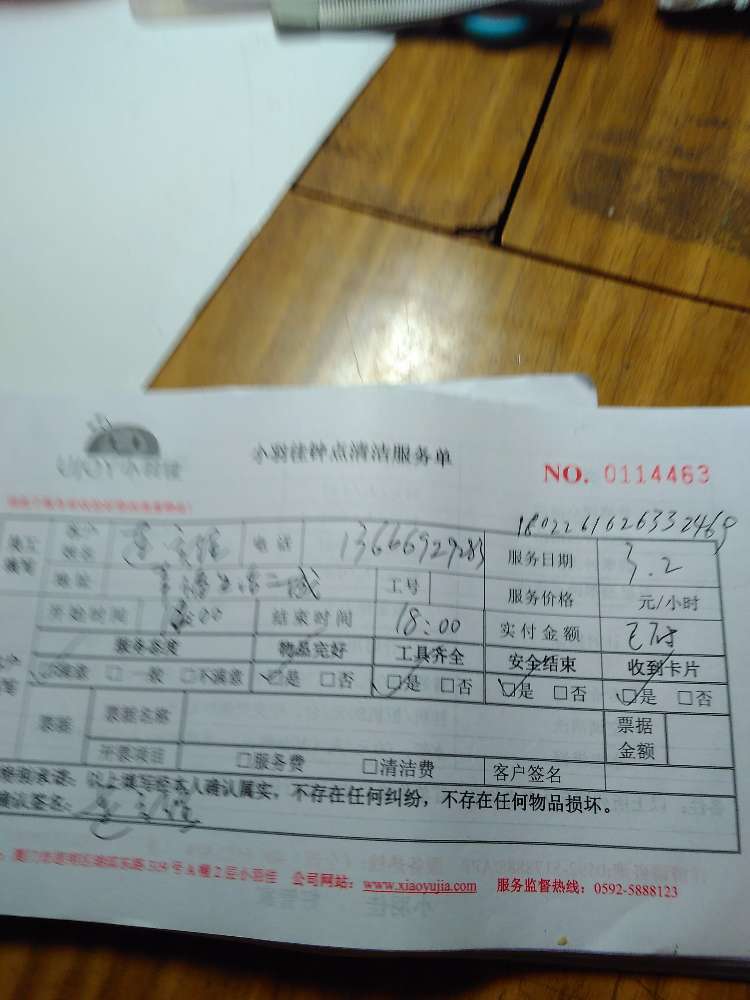 小羽佳钟点清洁服务单
NO. 0114463
1802261626332469
客户姓名 电话 13666929283 服务日期 3.2
地址 工号 服务价格 元/小时
开始时间 :00 结束时间 18:00 实付金额 已付
服务态度 物品完好 工具齐全 安全结束 收到卡片
□满意 □一般 □不满意 □是 □否 □是 □否 □是 □否 □是 □否
票据 票据名称 票据金额
开票项目 □服务费 □清洁费 客户签名
以上填写经本人确认属实，不存在任何纠纷，不存在任何物品损坏。
确认签名：
2层小羽佳 公司网站：www.xiaoyujia.com 服务监督热线：0592-5888123